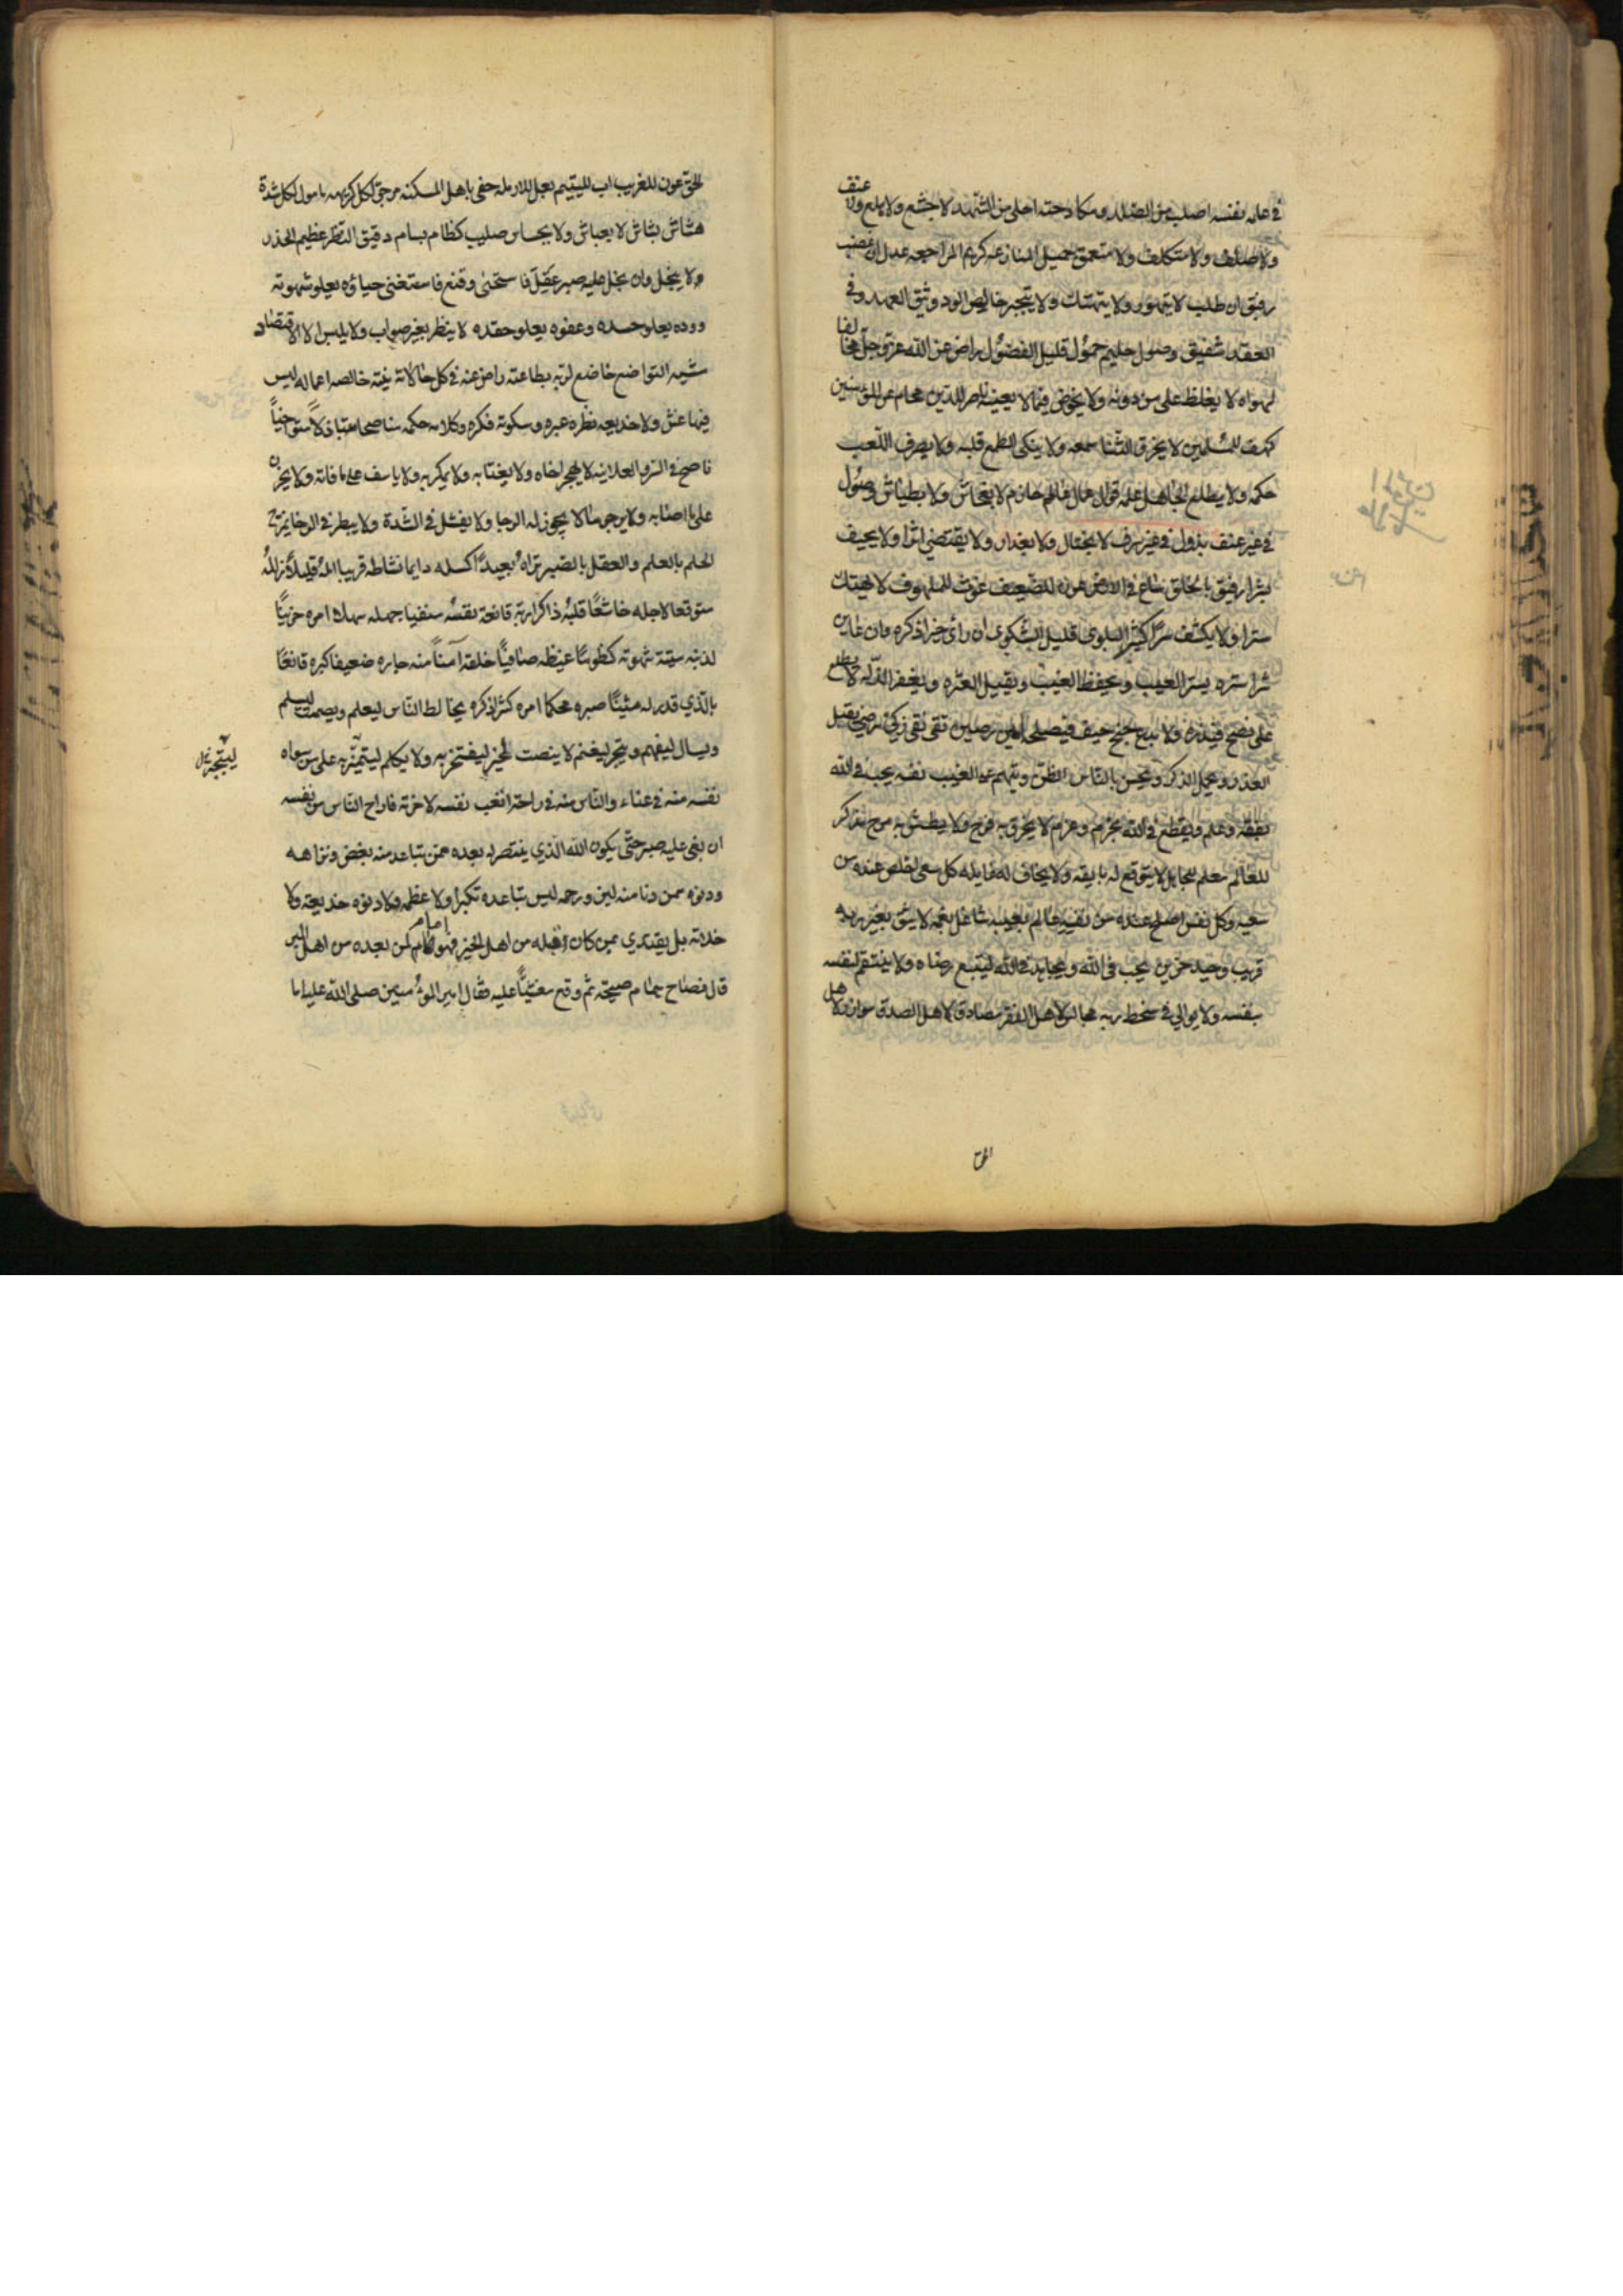 في علمه نفسه اصلب من الصلد ومكادحته احلى من الشهد لا جشع ولا هلع ولا عنف
ولا صلف ولا متكلف ولا متعمق جميل المنازعه كريم المراجعه عدل ان غضب
رفيق ان طلب لا يتهور ولا يتهتك ولا يتجبر خالص الود وثيق العهد وفي
العقد شفيق وصول حليم حمول قليل الفضول راض عن الله عز وجل مخالفا
لهواه لا يغلظ على من دونه ولا يخوض فيما لا يعينه ناصر للدين محام عن المؤمنين
كهف للمسلمين لا يخرق الثنا سمعه ولا ينكى الطمع قلبه ولا يصرف اللعب
حكمه ولا يطلع الجاهل علمه قوال عمال عالم حازم لا بفحاش ولا بطياش وصول
في غير عنف بذول في غير سرف لا بختال ولا بغدار ولا يقتفي اثرا ولا يحيف
بشرا رفيق بالخلق ساع في الارض عون للضعيف غوث للملهوف لا يهتك
سترا ولا يكشف سرا كثير البلوى قليل الشكوى ان راى خيرا ذكره وان عاين
شرا ستره يستر العيب ويحفظ الغيب ويقيل العثره ويغفر الزله لا يطلع
على نصح فيذره ولا يدع جنح حيف فيصلحه امين رصين تقي نقي زكي رضي يقبل
العذر ويجمل الذكر ويحسن بالناس الظن ويتهم على الغيب نفسه يحب في الله
بفقه وعلم ويقطع في الله بحزم وعزم لا يخرق به فرح ولا يطيش به مرح مذكر
للعالم معلم للجاهل لا يتوقع له بايقه ولا يخاف له غايله كل سعي اخلص عنده من
سعيه وكل نفس اصلح عنده من نفسه عالم بعيبه شاغل بغمه لا يثق بغير ربه
قريب وحيد حزين يحب في الله ويجاهد في الله ليتبع رضاه ولا ينتقم لنفسه
بنفسه ولا يوالي في سخط ربه مجالس لاهل الفقر مصادق لاهل الصدق موازر لاهل
الحق
الحق عون للغريب اب لليتيم بعل للارمله حفي باهل المسكنه مرجو لكل كريهه مامول لكل شدة
هشاش بشاش لا بعباس ولا بجساس صليب كظام بسام دقيق النظر عظيم الحذر
ولا يبخل وان بخل عليه صبر عقل فاستحيى وقنع فاستغنى حياؤه يعلو شهوته
ووده يعلو حسده وعفوه يعلو حقده لا ينظر بغير صواب ولا يلبس الا الاقتصاد
مشيه التواضع خاضع لربه بطاعته راض عنه في كل حالاته نيته خالصه اعماله ليس
فيها غش ولا خديعه نظره عبره وسكوته فكره وكلامه حكمه مناصحا متباذلا متواخيا
ناصح في السر والعلانيه لا يهجر اخاه ولا يغتابه ولا يمكر به ولا ياسف على ما فاته ولا يحزن
على ما اصابه ولا يرجو ما لا يجوز له الرجا ولا يفشل في الشدة ولا يبطر في الرخا يمزج
الحلم بالعلم والعقل بالصبر تراه بعيدا كسله دايما نشاطه قريبا امله قليلا زلله
متوقعا لاجله خاشعا قلبه ذاكرا ربه قانعة نفسه منفيا جهله سهلا امره حزينا
لذنبه ميتة شهوته كظوما غيظه صافيا خلقه آمنا منه جاره ضعيفا كبره قانعا
بالذي قدر له متينا صبره محكما امره كثيرا ذكره يخالط الناس ليعلم ويصمت ليسلم
ويسال ليفهم ويتجر ليغنم لا ينصت للخبر ليفتخر به ولا يكلم ليتميز به على من سواه
ليتجبر
نفسه منه في عناء والناس منه في راحة اتعب نفسه لاخرته فاراح الناس من نفسه
ان بغي عليه صبر حتى يكون الله الذي ينتصر له بعده ممن تباعد منه بغض ونزاهه
ودنوه ممن دنا منه لين ورحمه ليس تباعده تكبرا ولا عظمه ولا دنوه خديعه ولا
خلابه بل يقتدي بمن كان قبله من اهل الخير فهو امام لمن بعده من اهل البر
قال فصاح همام صيحة ثم وقع مغشيا عليه فقال امير المؤمنين صلى الله عليه اما